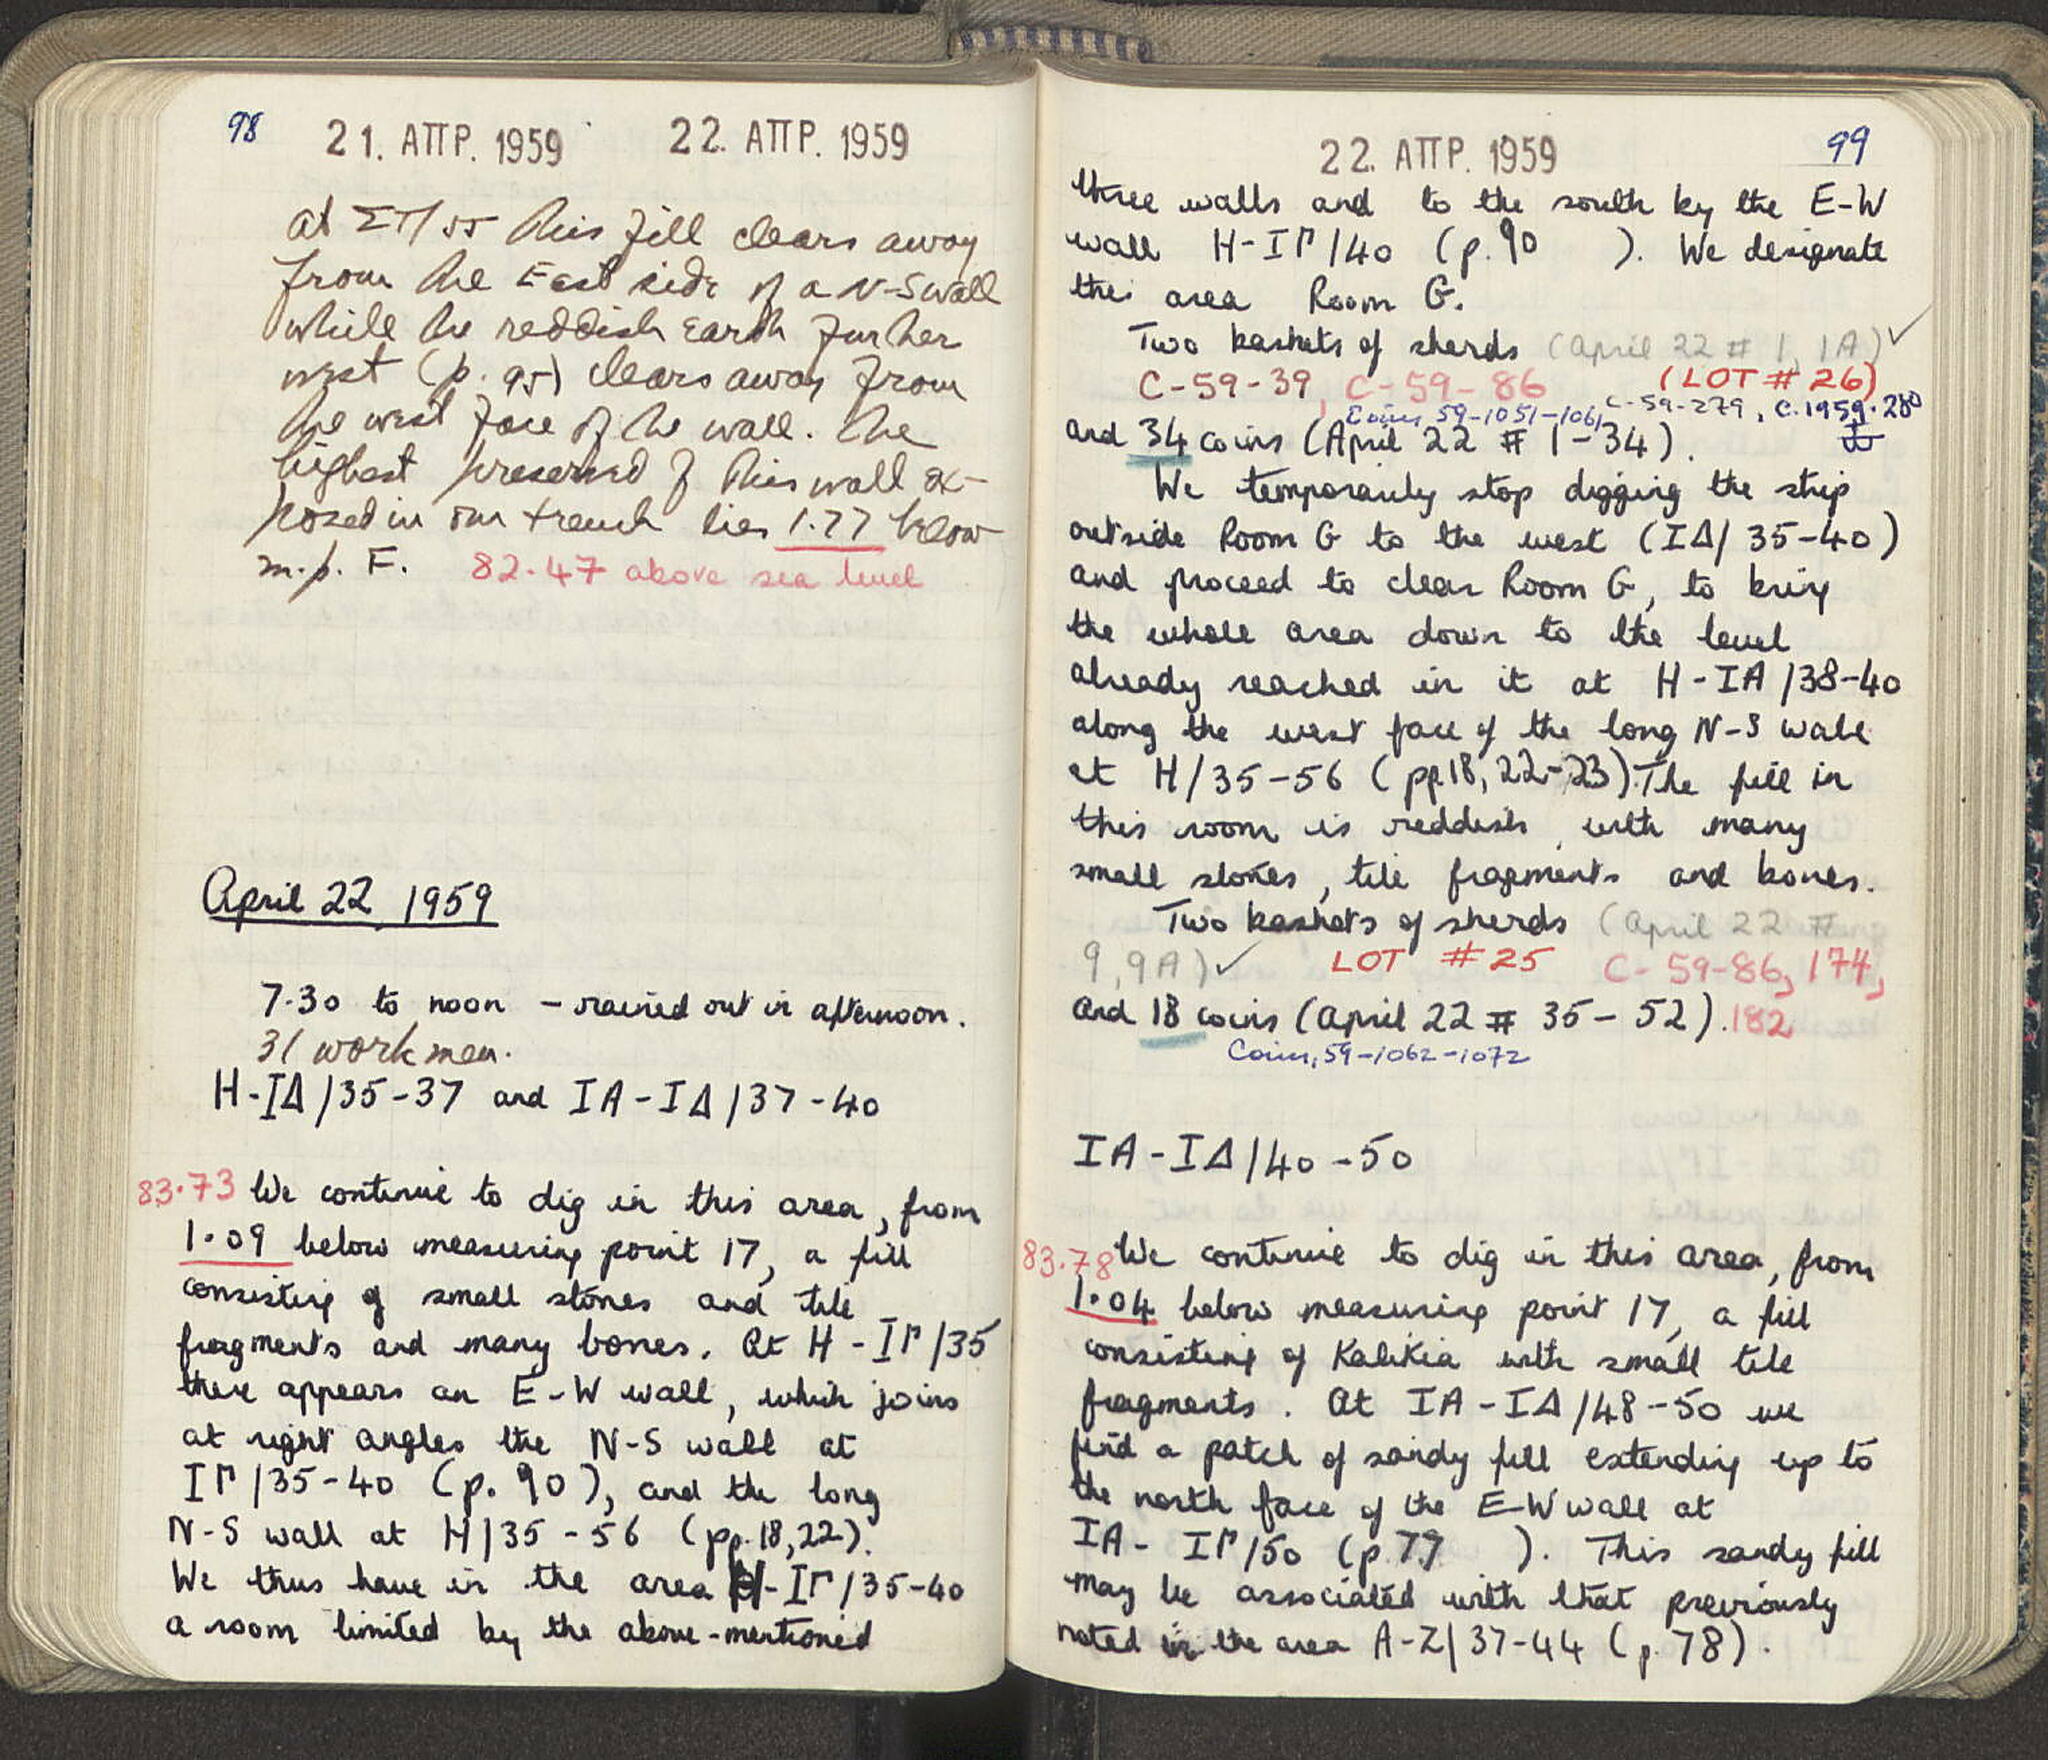 98
21. ΑΠΡ. 1959 22. ΑΠΡ. 1959
at ΣΤ/55 this fill clears away
from the East side of a N-S wall
while the reddish earth further
west (p. 95) clears away from
the west face of the wall. The
highest preserved of this wall ex-
posed in our trench lies 1.77 below
m.p. F. 82.47 above sea level
April 22, 1959
7.30 to noon – rained out in afternoon.
31 workmen.
H-IΔ/35-37 and IA-IΔ/37-40
83.73 We continue to dig in this area, from
1.09 below measuring point 17, a fill
consisting of small stones and tile
fragments and many bones. At H-IΓ/35
there appears an E-W wall, which joins
at right angles the N-S wall at
IΓ/35-40 (p. 90), and the long
N-S wall at H/35-56 (pp. 18, 22).
We thus have in the area H-IΓ/35-40
a room limited by the above-mentioned
99
22. ΑΠΡ. 1959
three walls and to the south by the E-W
wall H-IΓ/40 (p. 90 ). We designate
this area Room G.
Two baskets of sherds (April 22 # 1, 1A) ✓
C-59-39, C-59-86 (LOT # 26)
Coins 59-1051-1061 C-59-279, C.1959.280
and 34 coins (April 22 # 1-34).
We temporarily stop digging the strip
outside Room G to the west (IΔ/35-40)
and proceed to clear Room G, to bring
the whole area down to the level
already reached in it at H-IA/38-40
along the west face of the long N-S wall
at H/35-56 (pp. 18, 22-23). The fill in
this room is reddish, with many
small stones, tile fragments and bones.
Two baskets of sherds (April 22 #
9, 9A) ✓ LOT #25 C-59-86, 174,
and 18 coins (April 22 # 35-52). 182
Coins, 59-1062-1072
IA-IΔ/40-50
83.78 We continue to dig in this area, from
1.04 below measuring point 17, a fill
consisting of Kalikia with small tile
fragments. At IA-IΔ/48-50 we
find a patch of sandy fill extending up to
the north face of the E-W wall at
IA-IΓ/50 (p. 79 ). This sandy fill
may be associated with that previously
noted in the area A-Z/37-44 (p. 78).